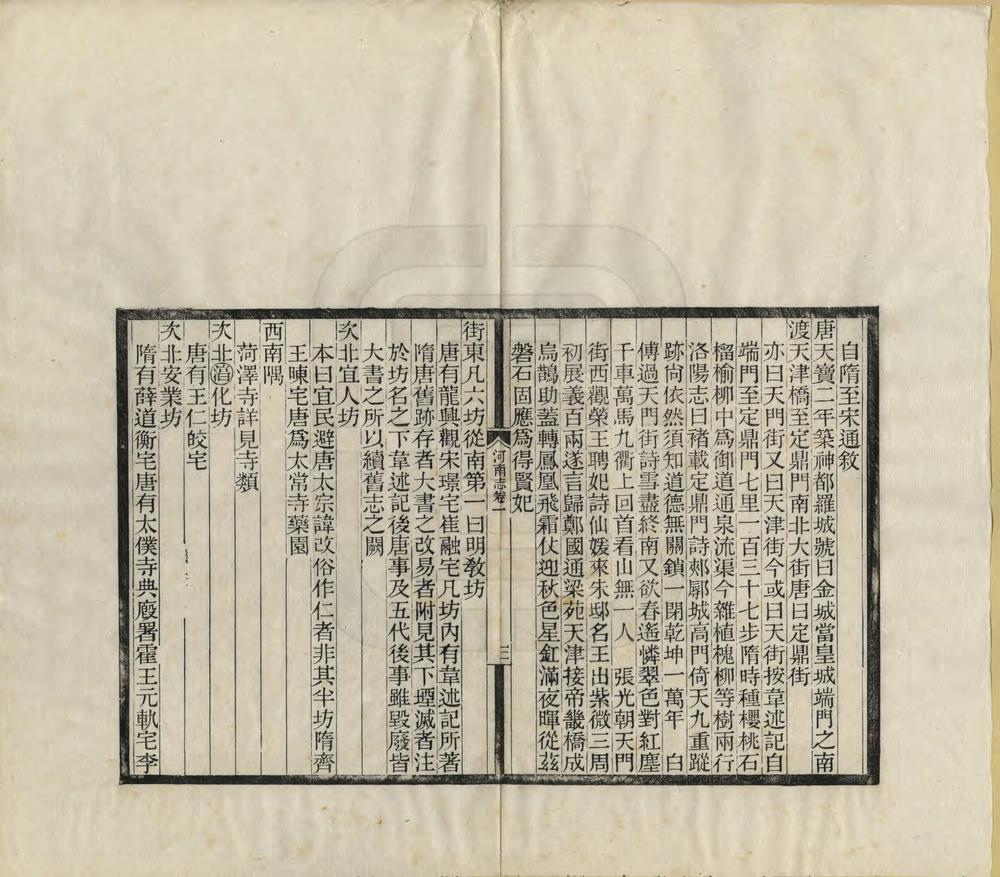 自隋至宋通敘
唐天寶二年築神都羅城號曰金城當皇城端門之南
渡天津橋至定鼎門南北大街唐曰定鼎街
亦曰天門街又曰天津街今或曰天街按韋述記自
端門至定鼎門七里一百三十七步隋時種櫻桃石
榴榆柳中爲御道通泉流渠今雜植槐柳等樹兩行
洛陽志曰褚載定鼎門詩郟鄏城高門倚天九重蹤
跡尙依然須知道德無關鎖一閉乾坤一萬年　白
傅過天門街詩雪盡終南又欲春遙憐翠色對紅塵
千車萬馬九衢上回首看山無一人　張光朝天門
街西觀榮王聘妃詩仙媛來朱邸名王出紫微三周
初展義百兩遂言歸鄭國通梁苑天津接帝畿橋成
烏鵲助蓋轉鳳凰飛霜仗迎秋色星釭滿夜暉從茲
磐石固應爲得賢妃
河南志卷一
三
街東凡六坊從南第一曰明敎坊
唐有龍興觀宋璟宅崔融宅凡坊內有韋述記所著
隋唐舊跡存者大書之改易者附見其下堙滅者注
於坊名之下韋述記後唐事及五代後事雖毀廢皆
大書之所以續舊志之闕
次北宜人坊
本曰宜民避唐太宗諱改俗作仁者非其半坊隋齊
王暕宅唐爲太常寺藥園
西南隅
菏澤寺詳見寺類
次北淳化坊
唐有王仁皎宅
次北安業坊
隋有薛道衡宅唐有太僕寺典廄署霍王元軌宅李